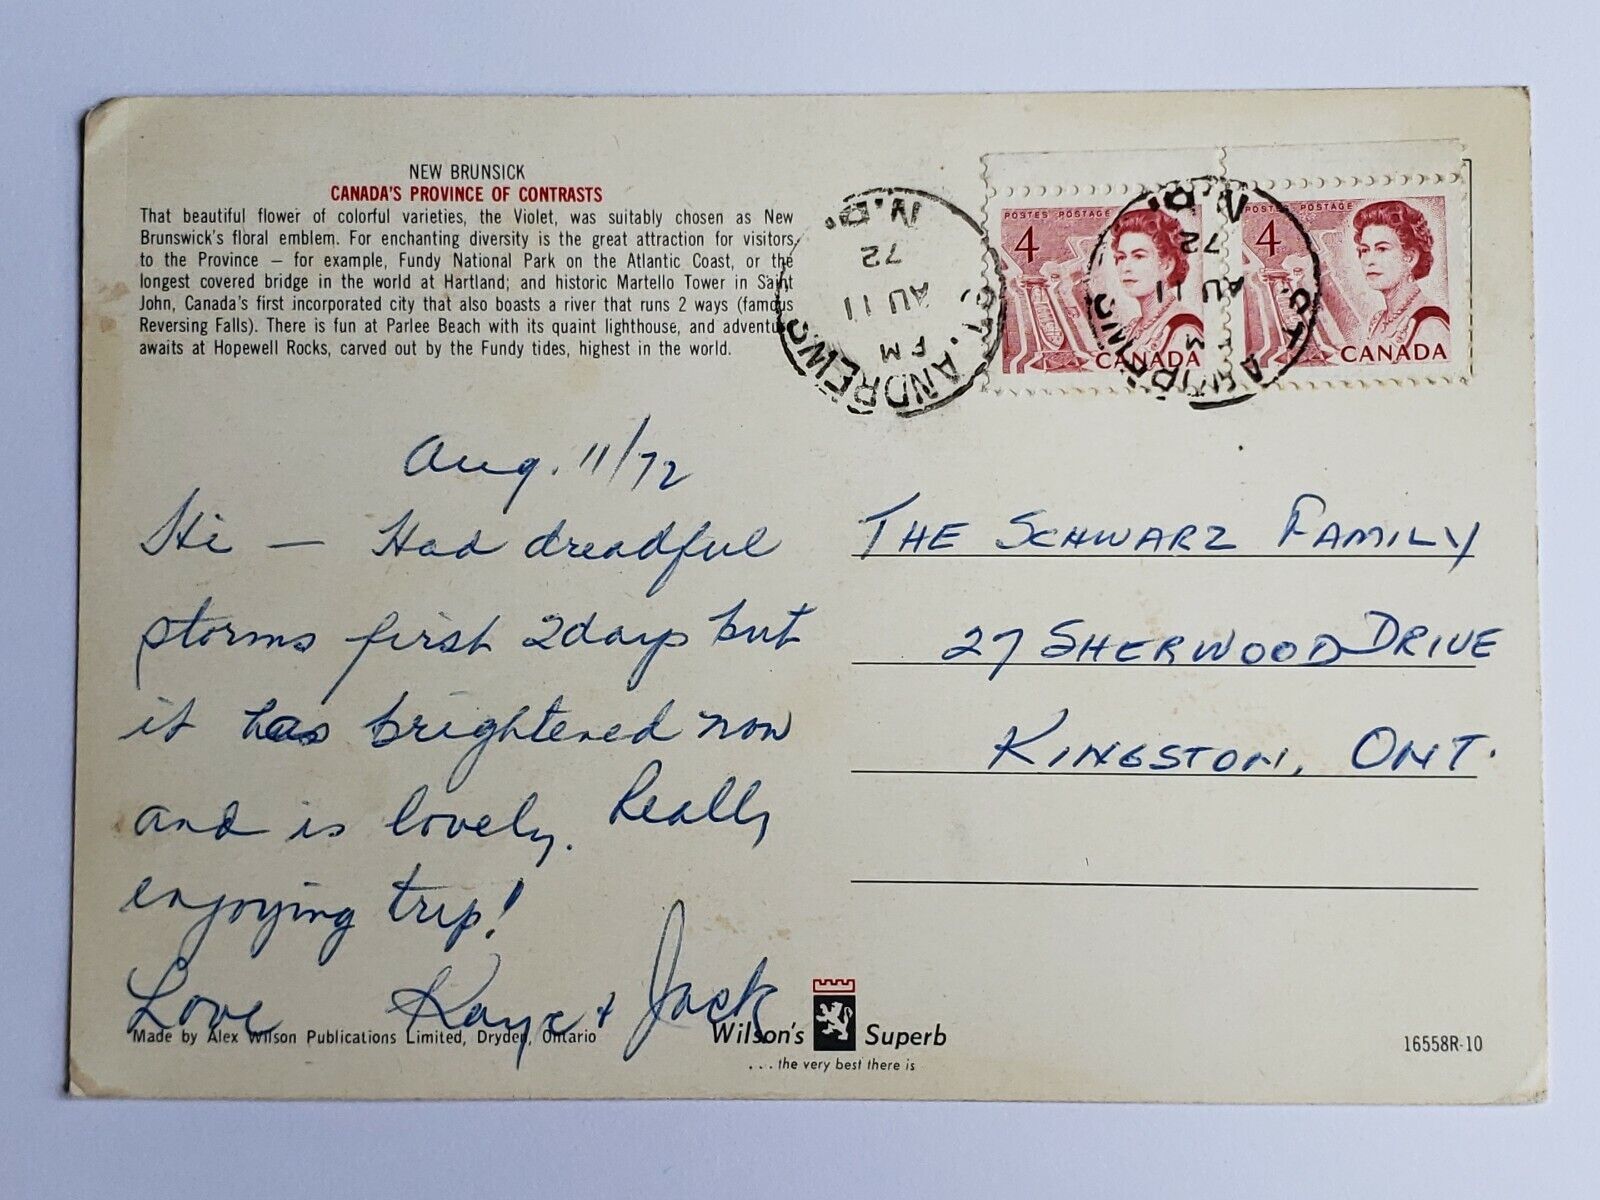 NEW BRUNSICK
CANADA'S PROVINCE OF CONTRASTS
That beautiful flower of colorful varieties, the Violet, was suitably chosen as New
Brunswick's floral emblem. For enchanting diversity is the great attraction for visitors
to the Province — for example, Fundy National Park on the Atlantic Coast, or the
longest covered bridge in the world at Hartland; and historic Martello Tower in Saint
John, Canada's first incorporated city that also boasts a river that runs 2 ways (famous
Reversing Falls). There is fun at Parlee Beach with its quaint lighthouse, and adventure
awaits at Hopewell Rocks, carved out by the Fundy tides, highest in the world.
ST. ANDREWS
PM
AU 11
72
N.B.
POSTES POSTAGE
4
CANADA
POSTES POSTAGE
4
CANADA
ST. ANDREWS
PM
AU 11
72
N.B.
Aug. 11/72
Hi — Had dreadful
storms first 2 days but
it has brightened now
and is lovely. Really
enjoying trip!
Love Kaye + Jack
THE SCHWARZ FAMILY
27 SHERWOOD DRIVE
KINGSTON, ONT.
Made by Alex Wilson Publications Limited, Dryden, Ontario
Wilson's Superb
... the very best there is
16558R-10